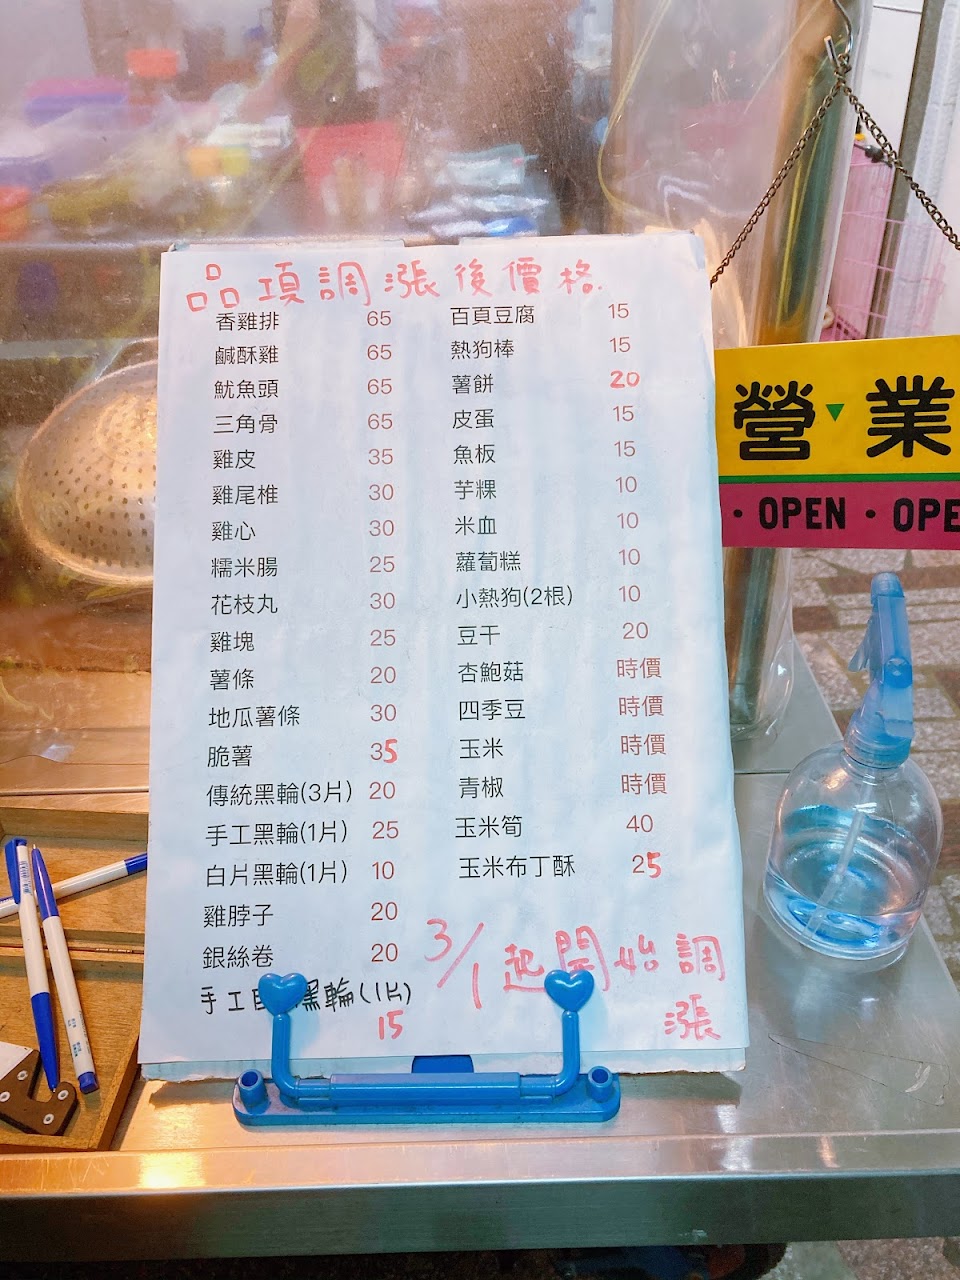 品項調漲後價格
香雞排 65
鹹酥雞 65
魷魚頭 65
三角骨 65
雞皮 35
雞尾椎 30
雞心 30
糯米腸 25
花枝丸 30
雞塊 25
薯條 20
地瓜薯條 30
脆薯 35
傳統黑輪(3片) 20
手工黑輪(1片) 25
白片黑輪(1片) 10
雞脖子 20
銀絲卷 20
手工 黑輪(1片)
15
百頁豆腐 15
熱狗棒 15
薯餅 20
皮蛋 15
魚板 15
芋粿 10
米血 10
蘿蔔糕 10
小熱狗(2根) 10
豆干 20
杏鮑菇 時價
四季豆 時價
玉米 時價
青椒 時價
玉米筍 40
玉米布丁酥 25
3/1起開始調
漲
營業
· OPEN · OPE